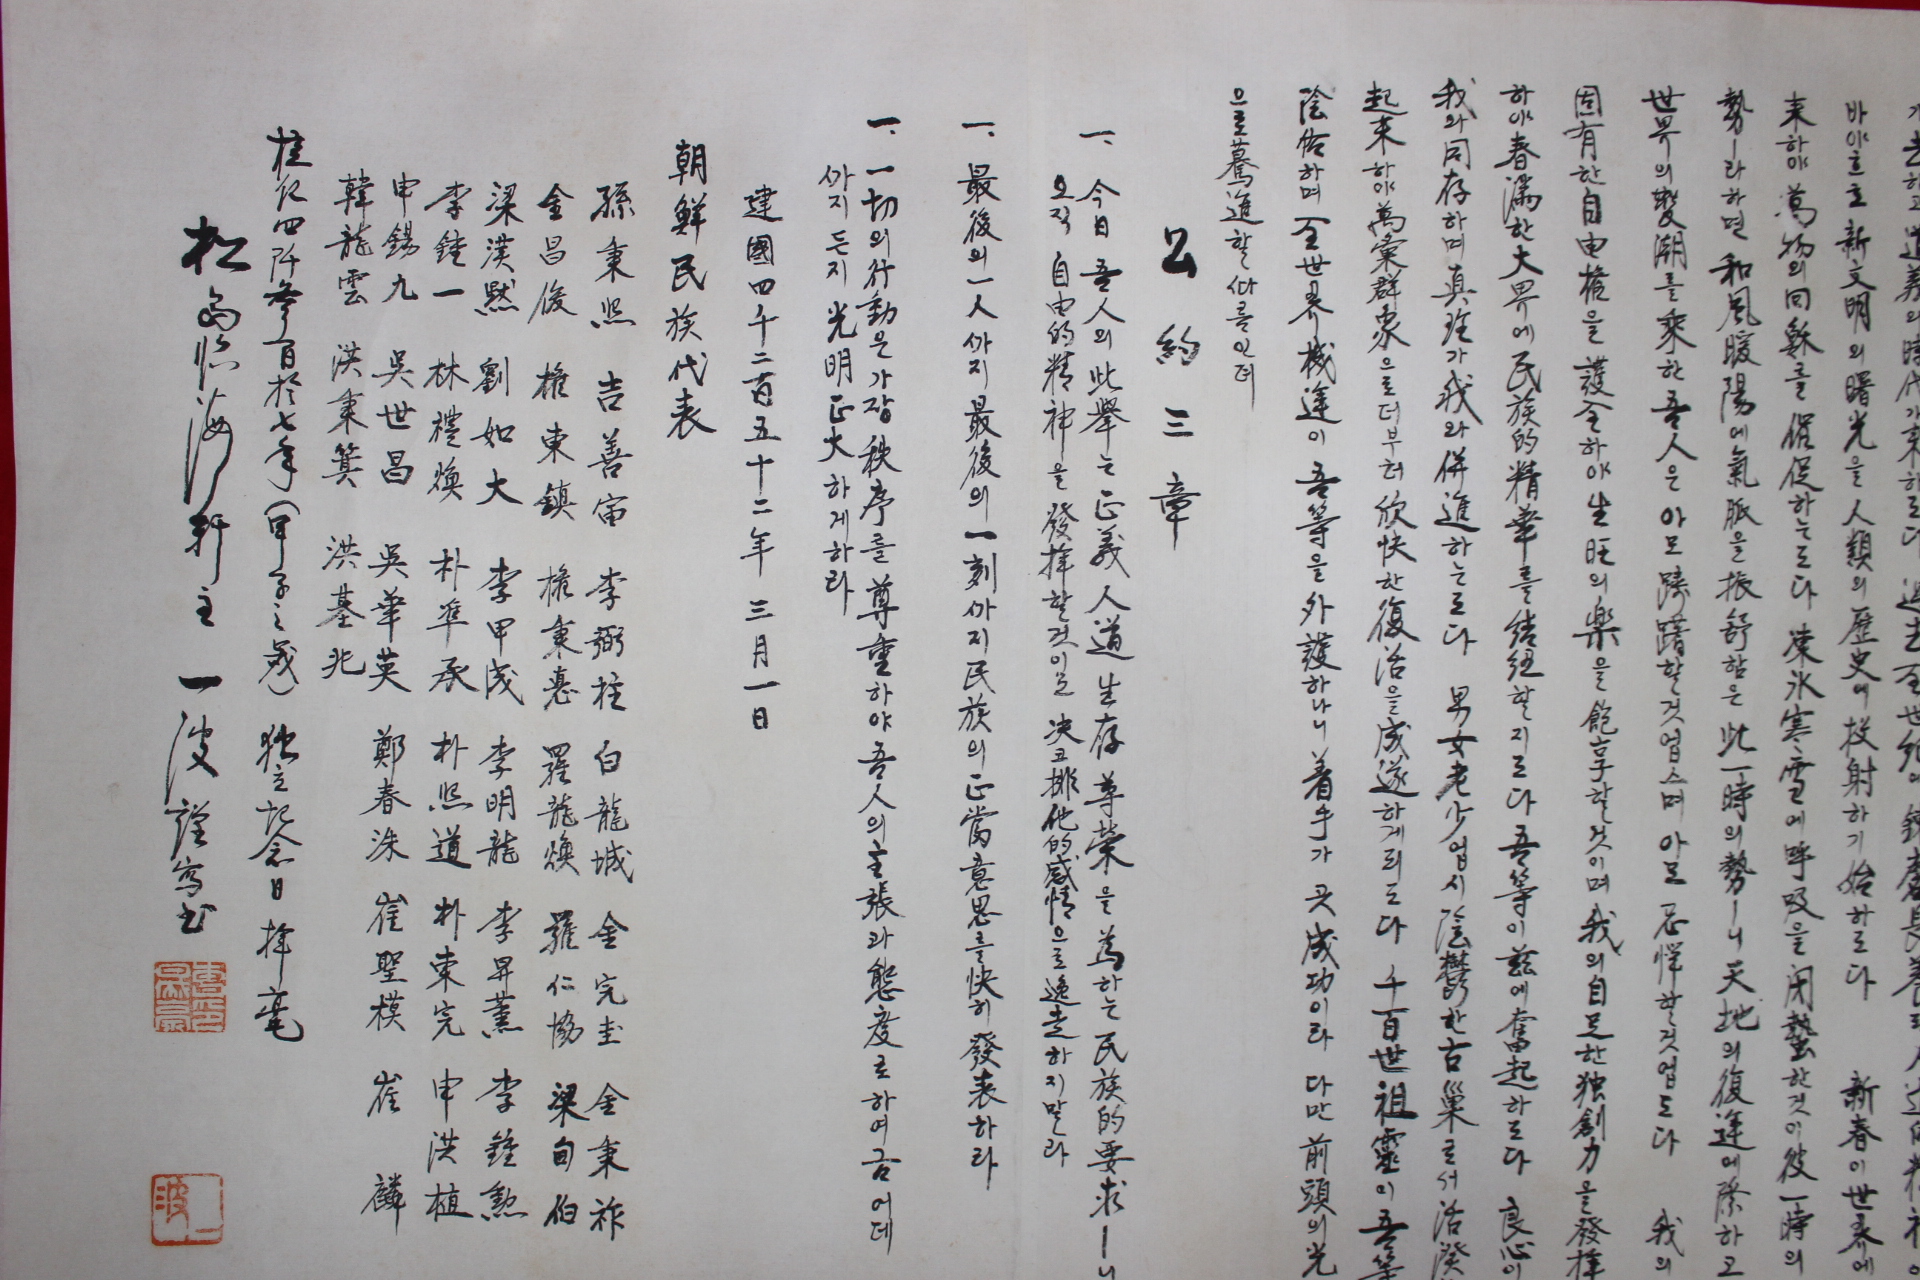 가去하고 道義의 時代가 来하도다 過去 全世紀에 鍊磨長養된 人道的 精神이
바야흐로 新文明의 曙光을 人類의 歷史에 投射하기 始하도다 新春이 世界에
来하야 萬物의 回蘇를 催促하는도다 凍氷寒雪에 呼吸을 閉蟄한것이 彼一時의
勢ㅣ라하면 和風暖陽에 氣脈을 振舒함은 此一時의 勢ㅣ니 天地의 復運에 際하고
世界의 變潮를 乘한 吾人은 아모 躊躇할것업스며 아모 忌憚할것업도다 我의
固有한 自由權을 護全하야 生旺의 樂을 飽享할것이며 我의 自足한 独創力을 發揮
하야 春滿한 大界에 民族的 精華를 結紐할지로다 吾等이 玆에 奮起하도다 良心이
我와 同存하며 真理가 我와 併進하는도다 男女老少업시 陰鬱한 古巢로서 活潑
起来하야 萬彙群象으로더부러 欣快한 復活을 成遂하게되도다 千百世祖靈이 吾等
陰佑하며 全世界機運이 吾等을 外護하나니 着手가 곳 成功이라 다만 前頭의 光
으로 驀進할 ᄯᅡ름인뎌
公約三章
一. 今日 吾人의 此擧는 正義 人道 生存 尊榮을 為하는 民族的 要求ㅣ니
오직 自由的 精神을 發揮할것이오 決코 排他的 感情으로 逸走하지말라
一. 最後의 一人ᄭᅡ지 最後의 一刻ᄭᅡ지 民族의 正當 意思를 快히 發表하라
一. 一切의 行動은 가장 秩序를 尊重하야 吾人의 主張과 態度로하여금 어데
ᄭᅡ지든지 光明正大하게하라
建國四千二百五十二年 三月一日
朝鮮民族代表
孫秉熙 吉善宙 李弼柱 白龍城 金完圭 金秉祚
金昌俊 權東鎮 權秉悳 羅龍煥 羅仁協 梁甸伯
梁漢黙 劉如大 李甲成 李明龍 李昇薰 李鍾勲
李鍾一 林禮煥 朴準承 朴熙道 朴東完 申洪植
申錫九 吳世昌 吳華英 鄭春洙 崔聖模 崔 麟
韓龍雲 洪秉箕 洪基兆
檀紀四阡參百拾七年(甲子之歲) 独立記念日 揮毫
松島臨海軒主 一波 謹寫書
一波